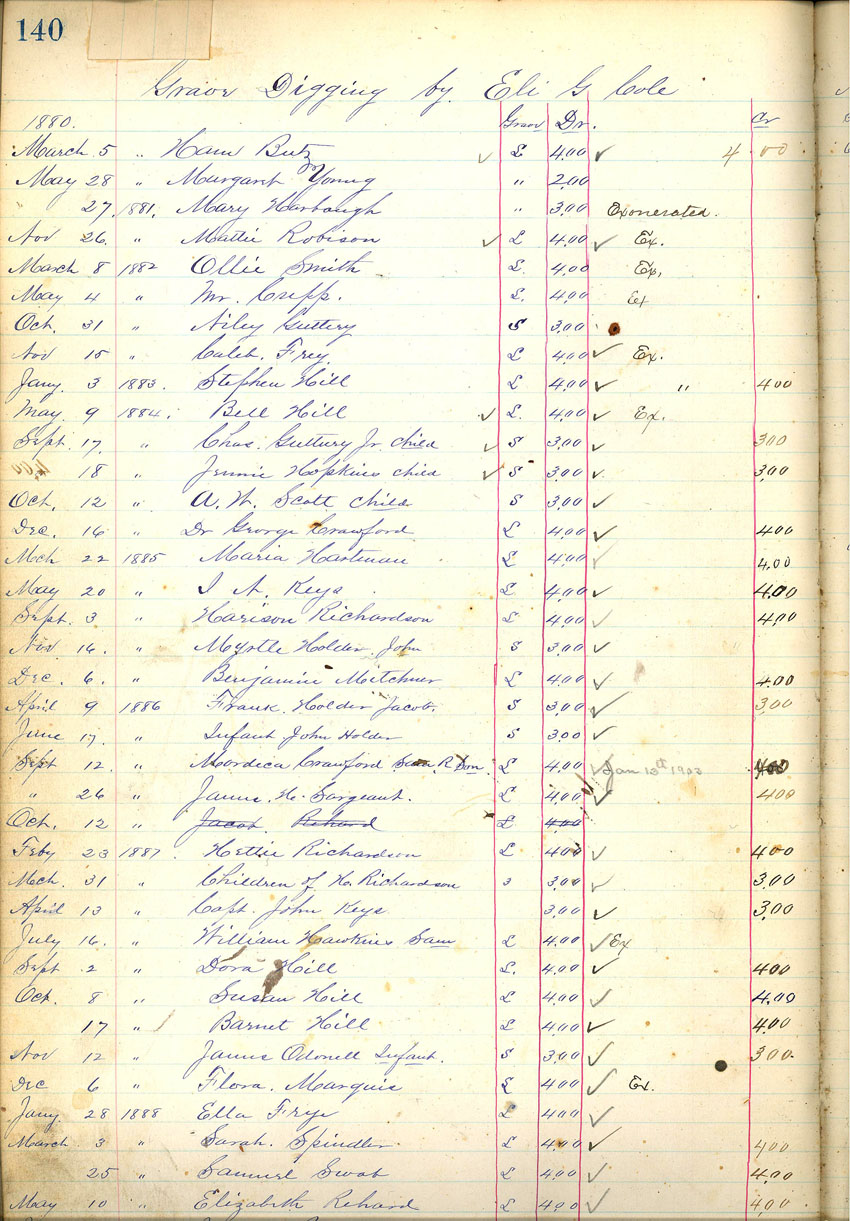 140
Grave Digging by Eli G Cole
1880. Grave Dr. Cr
March 5 " Ham Butz ✓ L 4,00 ✓ 4.00
May 28 " Margaret Young " 2,00
27. 1881. Mary Harbaugh " 3,00 Exonerated.
Nov 26. " Mattie Robison ✓ L 4,00 ✓ Ex.
March 8 1882 Ollie Smith L. 4,00 Ex.
May 4 " Mr. Cripp. L. 4,00 Ex
Oct. 31 " Niley Guttery S 3,00
Nov 15 " Caleb. Frey L 4,00 ✓ Ex.
Jany. 3 1883. Stephen Hill L 4,00 ✓ " 4,00
May. 9 1884. Bell Hill ✓ L. 4,00 ✓ Ex.
Sept. 17. " Chas. Guttery Jr. child ✓ S 3,00 ✓ 3,00
18 " Jennie Hopkins child ✓ S 3,00 ✓ 3,00
Oct. 12 " A. W. Scott child S 3,00 ✓
Dec. 16 " Dr George Crawford L 4,00 ✓ 4,00
Mch 22 1885 Maria Hartman L 4,00 ✓ 4,00
May 20 " I A. Keys L 4,00 ✓ 4,00
Sept. 3 " Harison Richardson L 4,00 ✓ 4,00
Nov 16. " Myrtle Holder, John S 3,00 ✓
Dec. 6. " Benjamine Mitchner L 4,00 ✓ 4,00
April 9 1886 Frank. Holder Jacob. S 3,00 ✓ 3,00
June 17. " Infant John Holder S 3,00 ✓
Sept 12. " Mordeca Crawford R Son L 4,00 ✓ Jan 13th 1903 4,00
" 26 " James. H. Sargeant. L 4,00 ✓ 4,00
Oct. 12 " Jacob. Rihard L 4,00
Feby 23 1887. Hettie Richardson L 4,00 ✓ 4,00
Mch. 31 " Children of H. Richardson s 3,00 ✓ 3,00
April 13 " Capt. John Keys 3,00 ✓ 3,00
July 16. " William Hawkins Sam L 4,00 ✓ Ex
Sept 2 " Dora Hill L. 4,00 ✓ 4,00
Oct. 8 " Susan Hill L 4,00 ✓ 4,00
17 " Barnet Hill L 4,00 ✓ 4,00
Nov 12 " James Odonell Infant. S 3,00 ✓ 3,00
Dec 6 " Flora. Marquis L 4,00 ✓ Ex.
Jany. 28 1888 Ella Frye L 4,00 ✓
March 3 " Sarah. Spindler. L 4,00 ✓ 4,00
25 " Samuel Swab L 4,00 ✓ 4,00
May 10 " Elizabeth Rihard L 4,00 ✓ 4,00